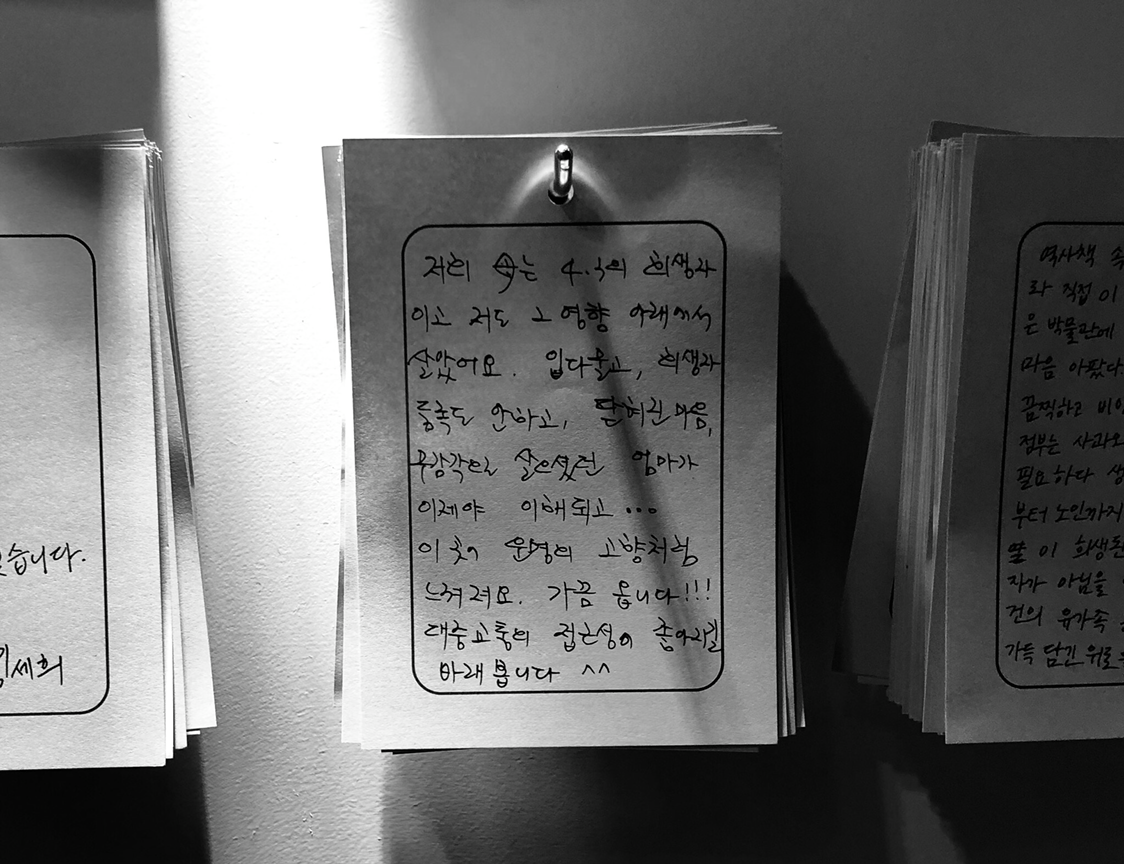 습니다.
세희
저희 母는 4.3의 희생자
이고 저도 그 영향 아래에서
살았어요. 입다물고, 희생자
등록도 안하고, 닫혀진 마음,
무감각으로 살으셨던 엄마가
이제야 이해되고...
이 곳이 운명의 고향처럼
느껴져요. 가끔 옵니다!!!
대중교통의 접근성이 좋아지길
바래 봅니다 ^^
역사책 속
라 직접 이
은 박물관에
마음 아팠다.
끔찍하고
정부는 사과와
필요하다 생
부터 노인까지
이 희생된
자가 아님을
건의 유가족
가득 담긴 위로